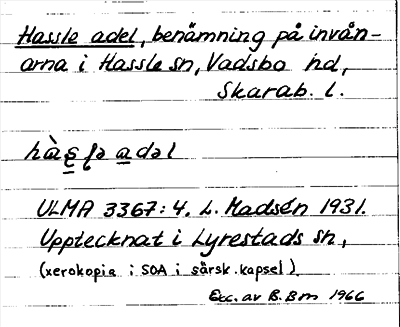 Hassle adel, benämning på invån-
arna i Hassle sn, Vadsbo hd,
Skarab. l.
hàs̳ʂlə a̲dəl
ULMA 3367:4. L. Madsén 1931.
Upptecknat i Lyrestads sn,
(xerokopia i SOA i särsk. kapsel).
Exc. av B. Bm 1966